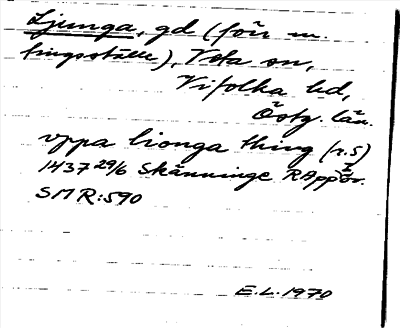 Ljunga, gd (förr m.
tingsställe), Veta sn,
Vifolka hd,
Östg. län.
vppa lionga thing (r.5)
1437 29/6 Skänninge RApp 2 or.
SMR:590
E.L. 1970